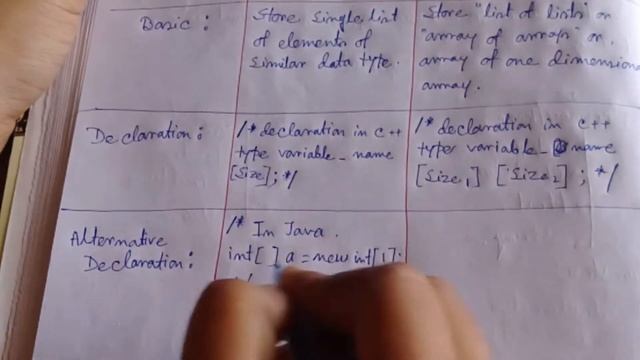 Basic :
Store Single list
of elements of
Similar data type.
Store "list of lists" or
"array of arrays" or
array of one dimensional
array.
Declaration :
/* declaration in c++
type variable_name
[Size]; */
/* declaration in c++
type variable_name
[Size1] [Size2] ; */
Alternative
Declaration :
/* In Java.
int[ ] a = new int[1];